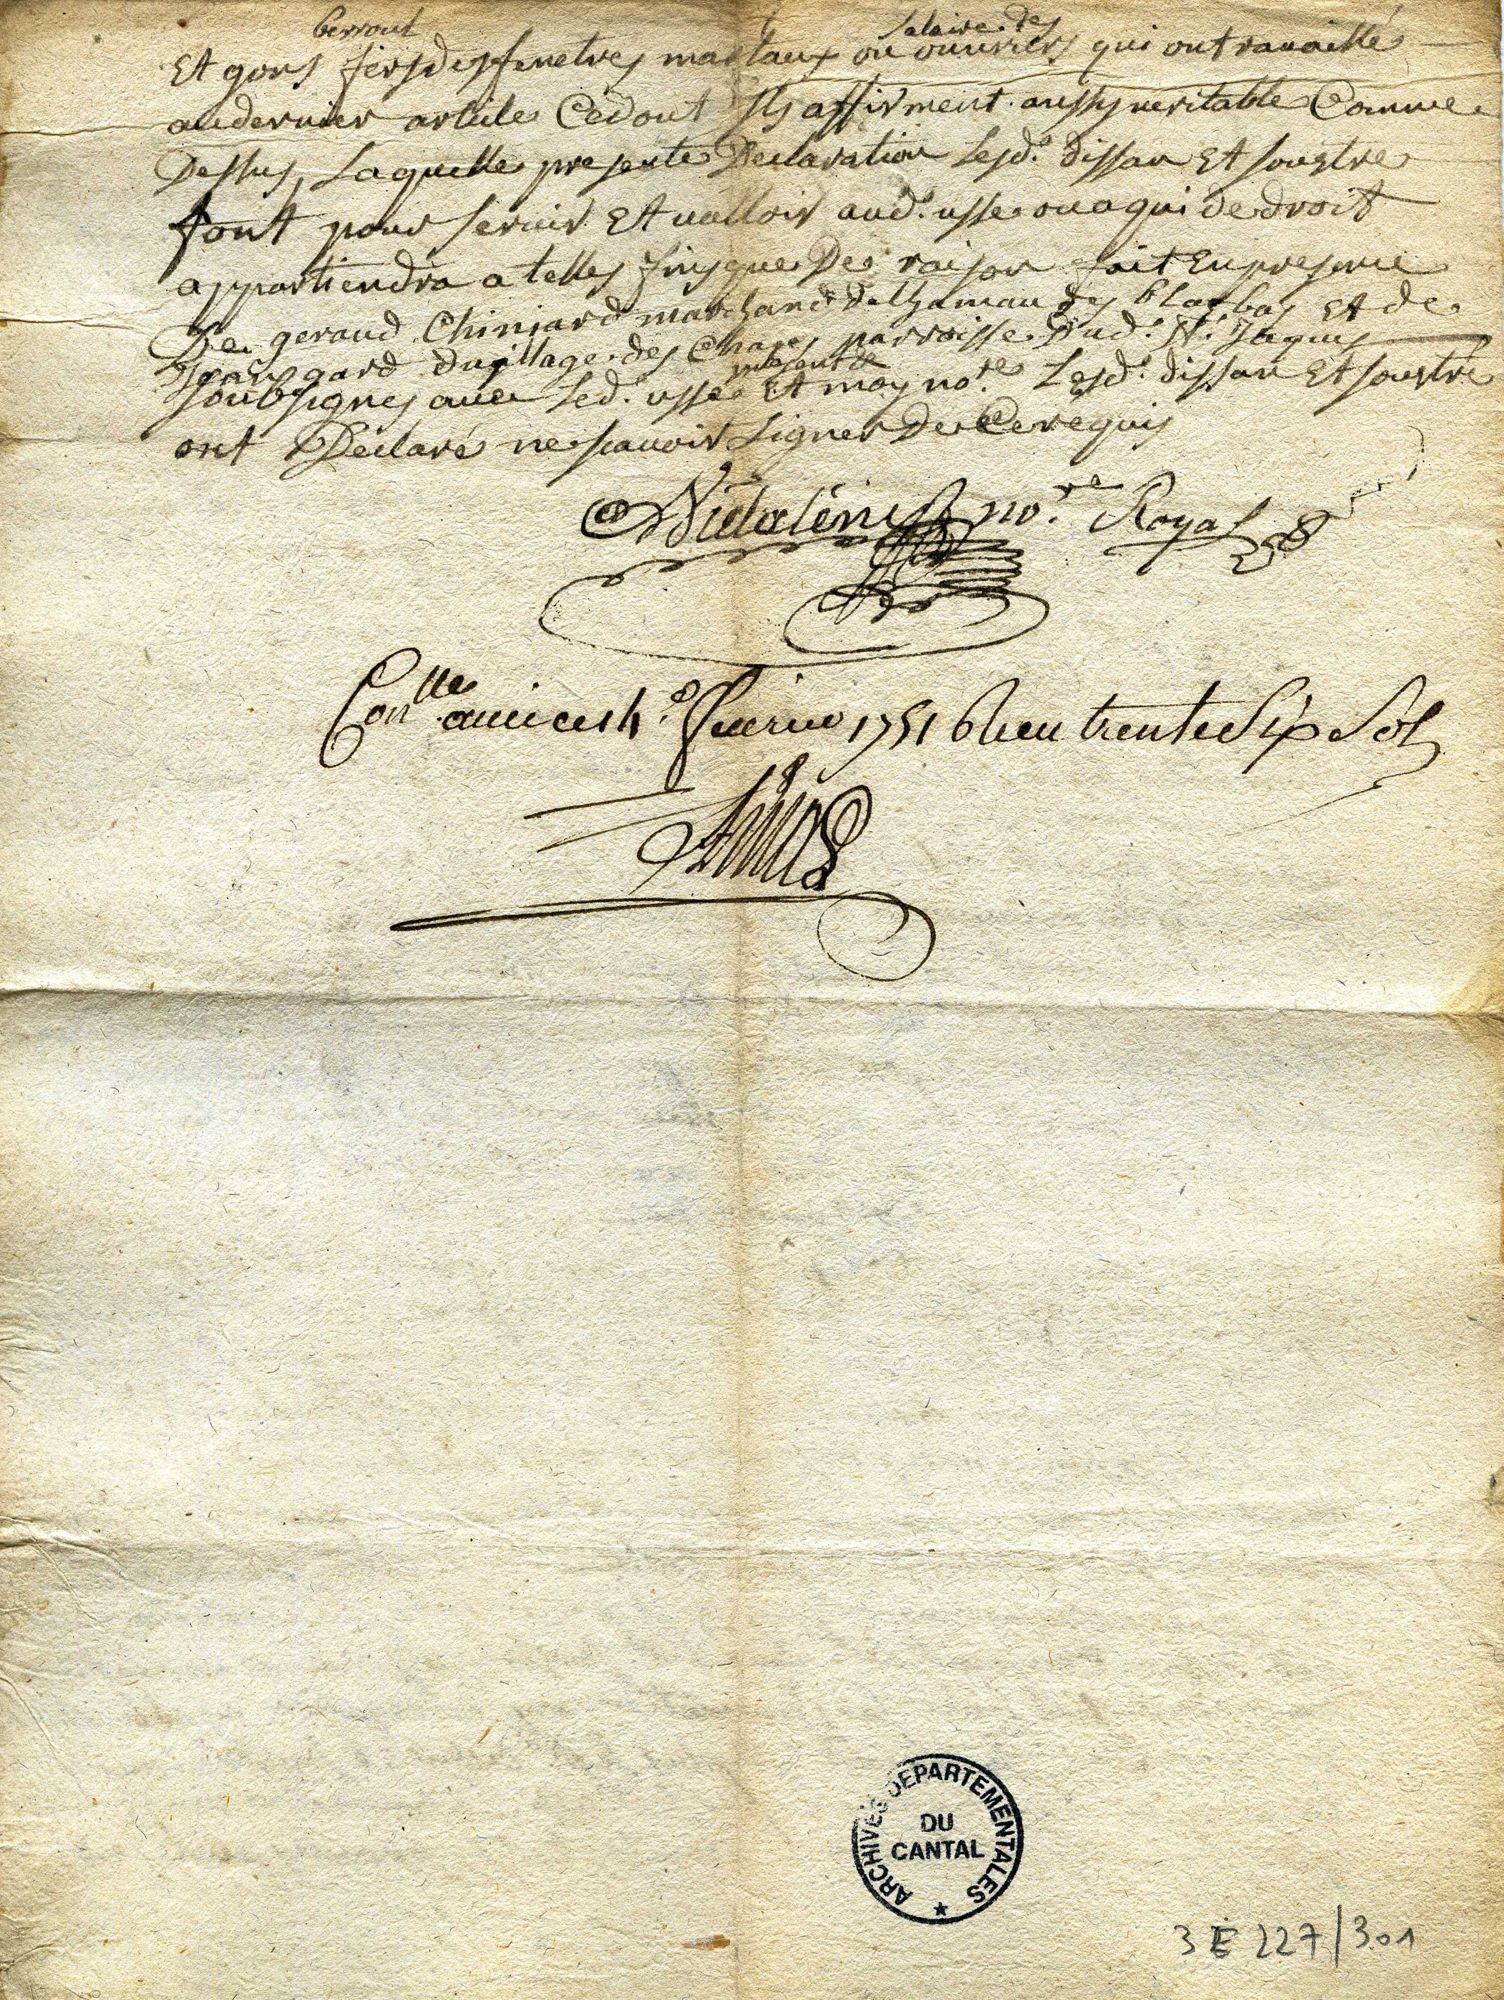 berrout salaire des
Et gons fers des fenetres ou ouvriers qui ont travaillé
au dernier article Cedont Ils affirment aussy veritable Comme
Dessus, Laquelle presente Declaration Lesd. dissan Et soustre
font pour servir Et valloir aud. usse ou a qui de droit
appartiendra a telles fins que De raison fait En presence
De geraud Chinjard marchand delhamau des Et de
gard du village des parroisse Dud. St. Jaques
present
soubsignes avec Led. usse Et moy nore. Lesd. dissan Et soustre
ont Declaré ne scavoir Signer De Ce requis
no.re Royal
Conlle a ce 4e fevrier 1751 Reeu trente Six Sols
ARCHIVES DEPARTEMENTALES
DU
CANTAL
3 E 227/301